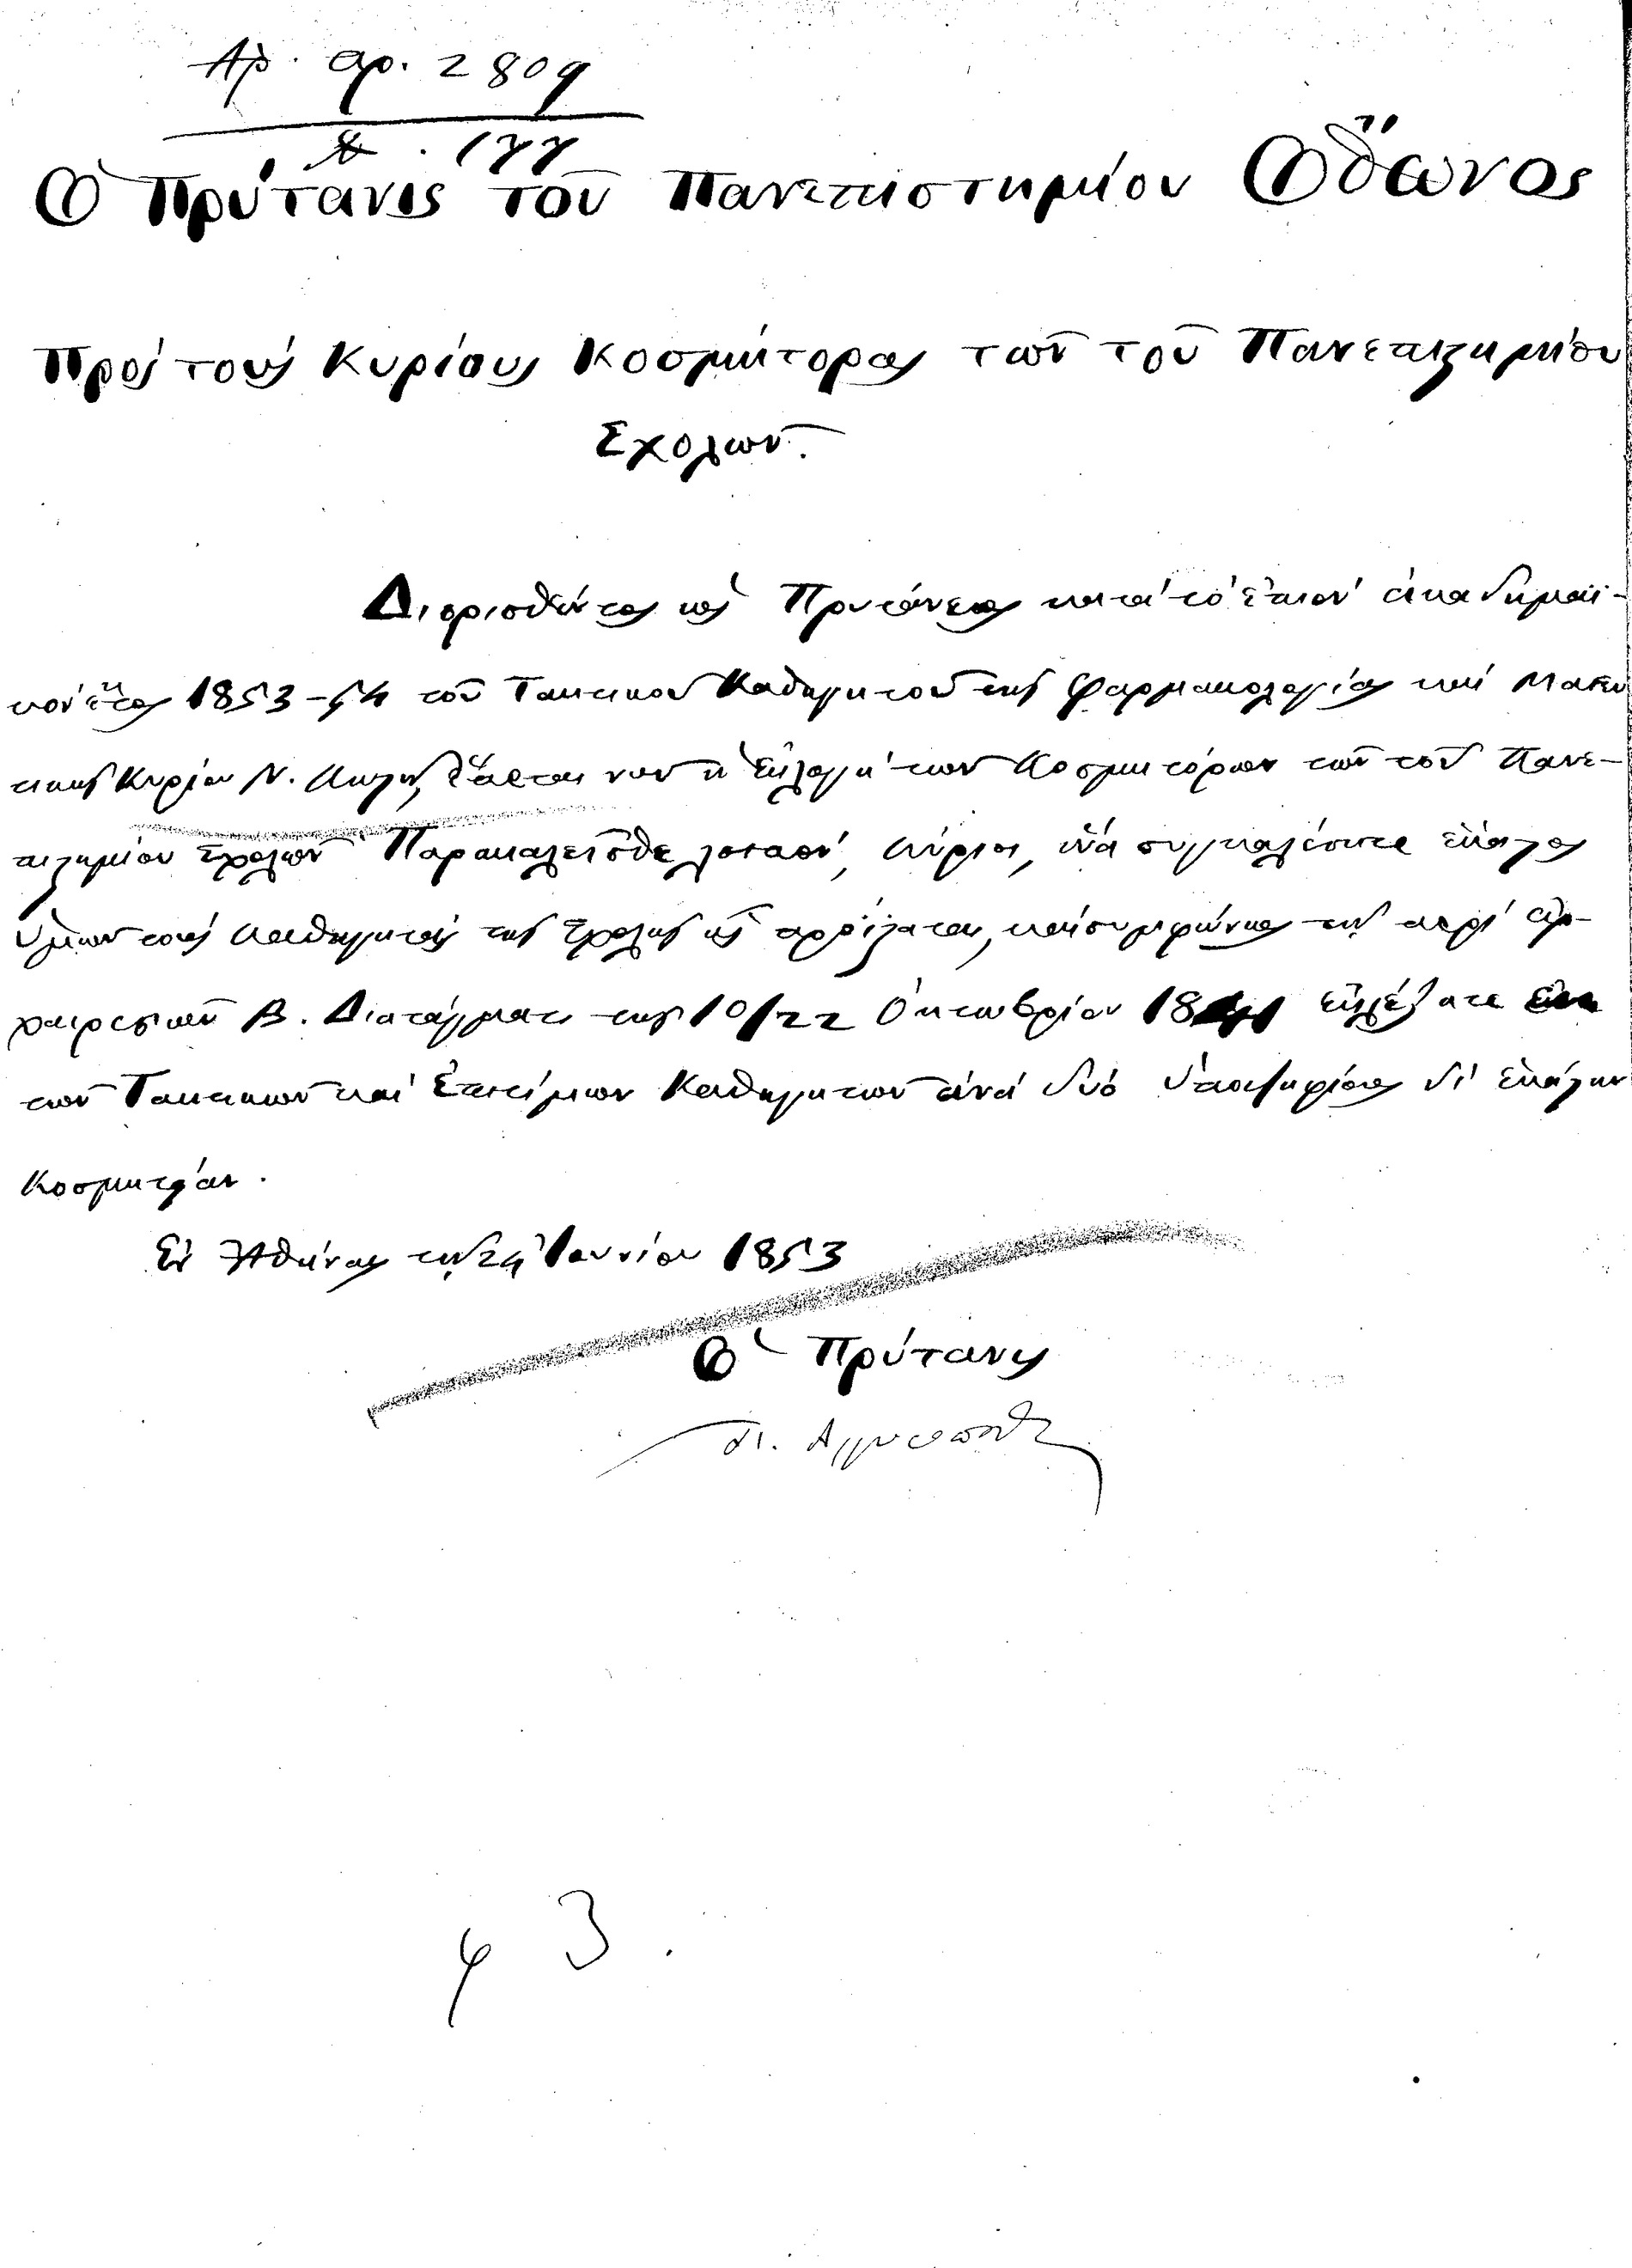 Αρ. πρ. 2809
Ὁ Πρύτανις τοῦ Πανεπιστημίου Ὄθωνος
Πρὸς τοὺς Κυρίους Κοσμήτορας τῶν τοῦ Πανεπιστημίου
Σχολῶν.
Διορισθέντος ὡς Πρυτάνεως κατὰ τὸ ἐπιὸν ἀκαδημαϊ-
κὸν ἔτος 1853-54 τοῦ Τακτικοῦ Καθηγητοῦ τῆς Φαρμακολογίας καὶ Μαιευ
τικῆς Κυρίου Ν. Κωστῆ, ἕπεται νῦν ἡ ἐκλογὴ τῶν Κοσμητόρων τῶν τοῦ Πανε-
πιστημίου Σχολῶν Παρακαλεῖσθε λοιπὸν, Κύριοι, νὰ συγκαλέσητε ἕκαστος
ὑμῶν τοὺς Καθηγητὰς τῆς Σχολῆς ἧς προΐσταται, καὶ συμφώνως τῷ περὶ ἀρ-
χαιρεσιῶν Β. Διατάγματι τῆς 10/22 Ὀκτωβρίου 1841 ἐκλέξατε ἐκ
τῶν Τακτικῶν καὶ Ἐπιτίμων Καθηγητῶν ἀνὰ δύο ὑποψηφίους δι' ἑκάστην
Κοσμητείαν.
Ἐν Ἀθήναις τῇ 24 Ἰουνίου 1853
Ὁ Πρύτανις
Π. Αργυρόπουλος
φ 3.